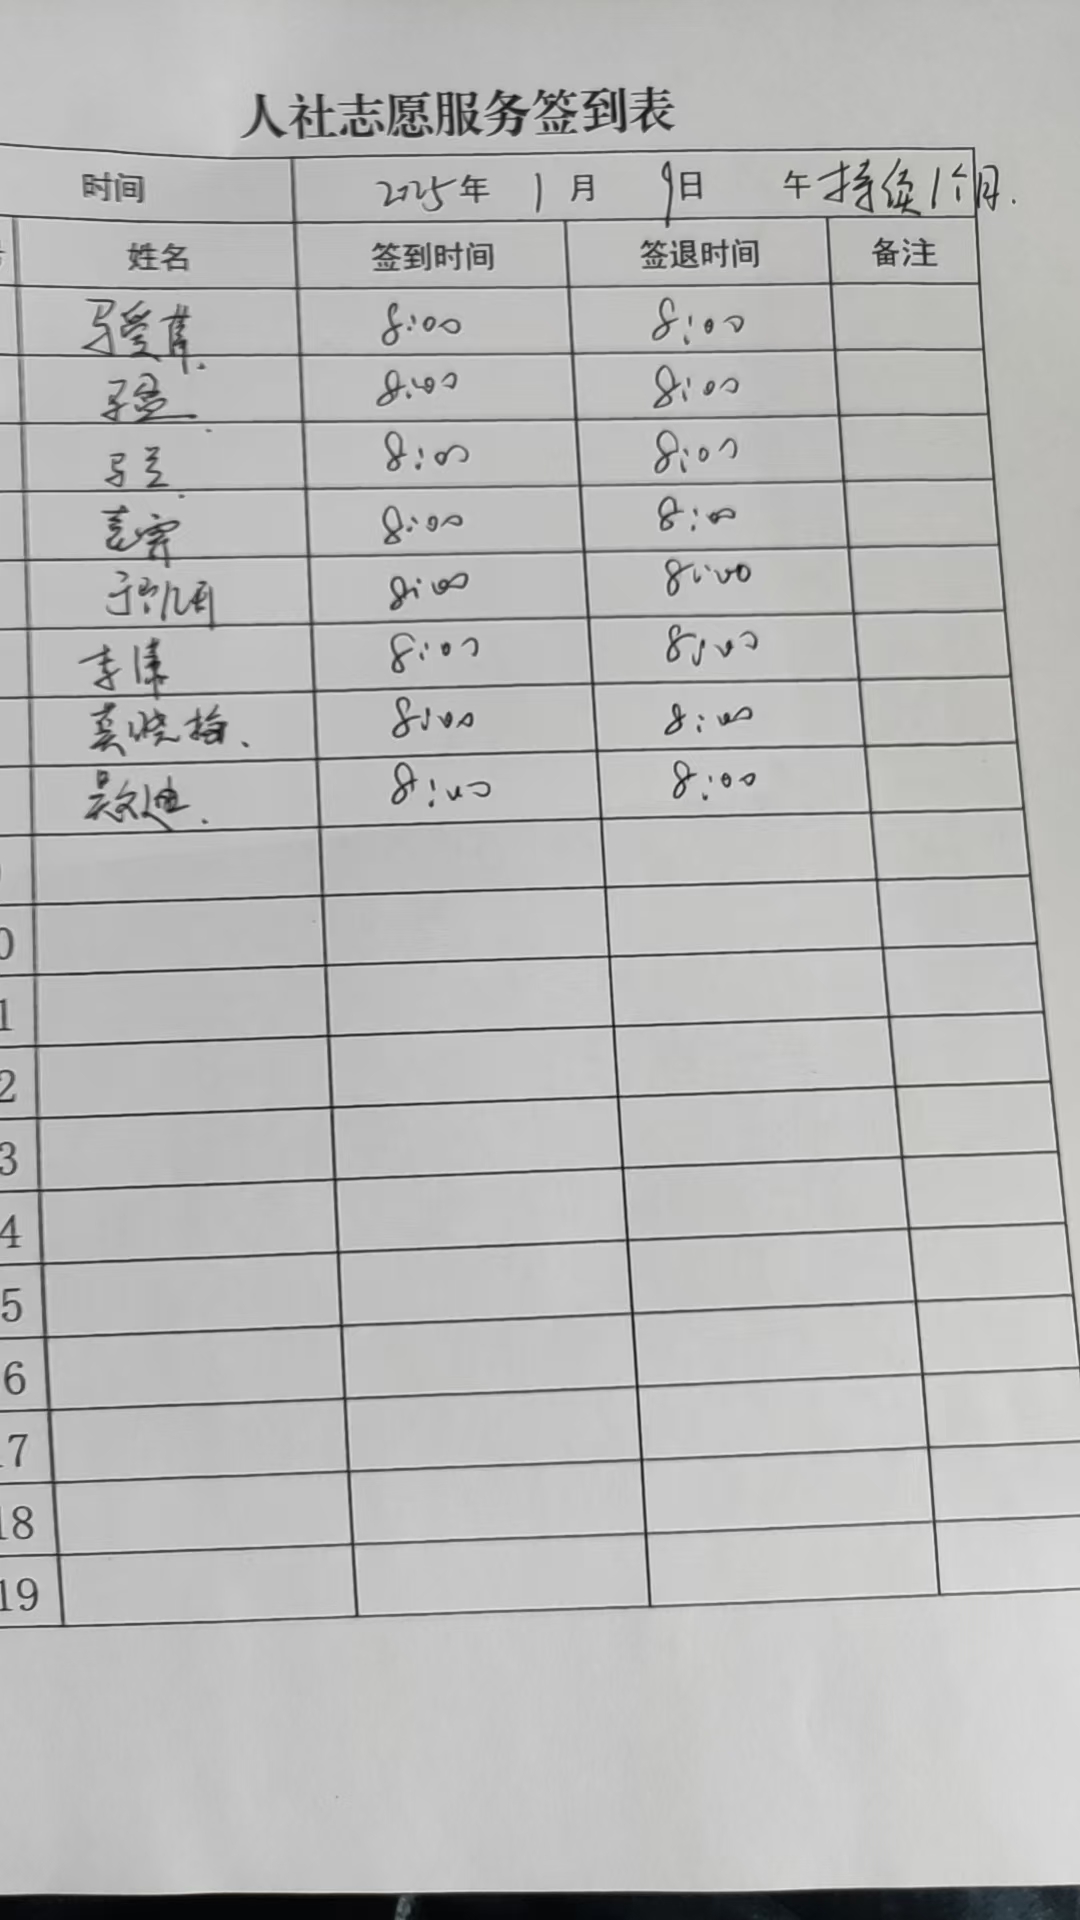 人社志愿服务签到表
时间 2025年 1月 9日 午 持续1个月.
姓名 签到时间 签退时间 备注
8:00 8:00
8:00 8:00
马兰. 8:00 8:00
8:00 8:00
8:00 8:00
李伟 8:00 8:00
莫晓梅、 8:00 8:00
吴文迪. 8:00 8:00
0
1
2
3
4
5
6
17
18
19